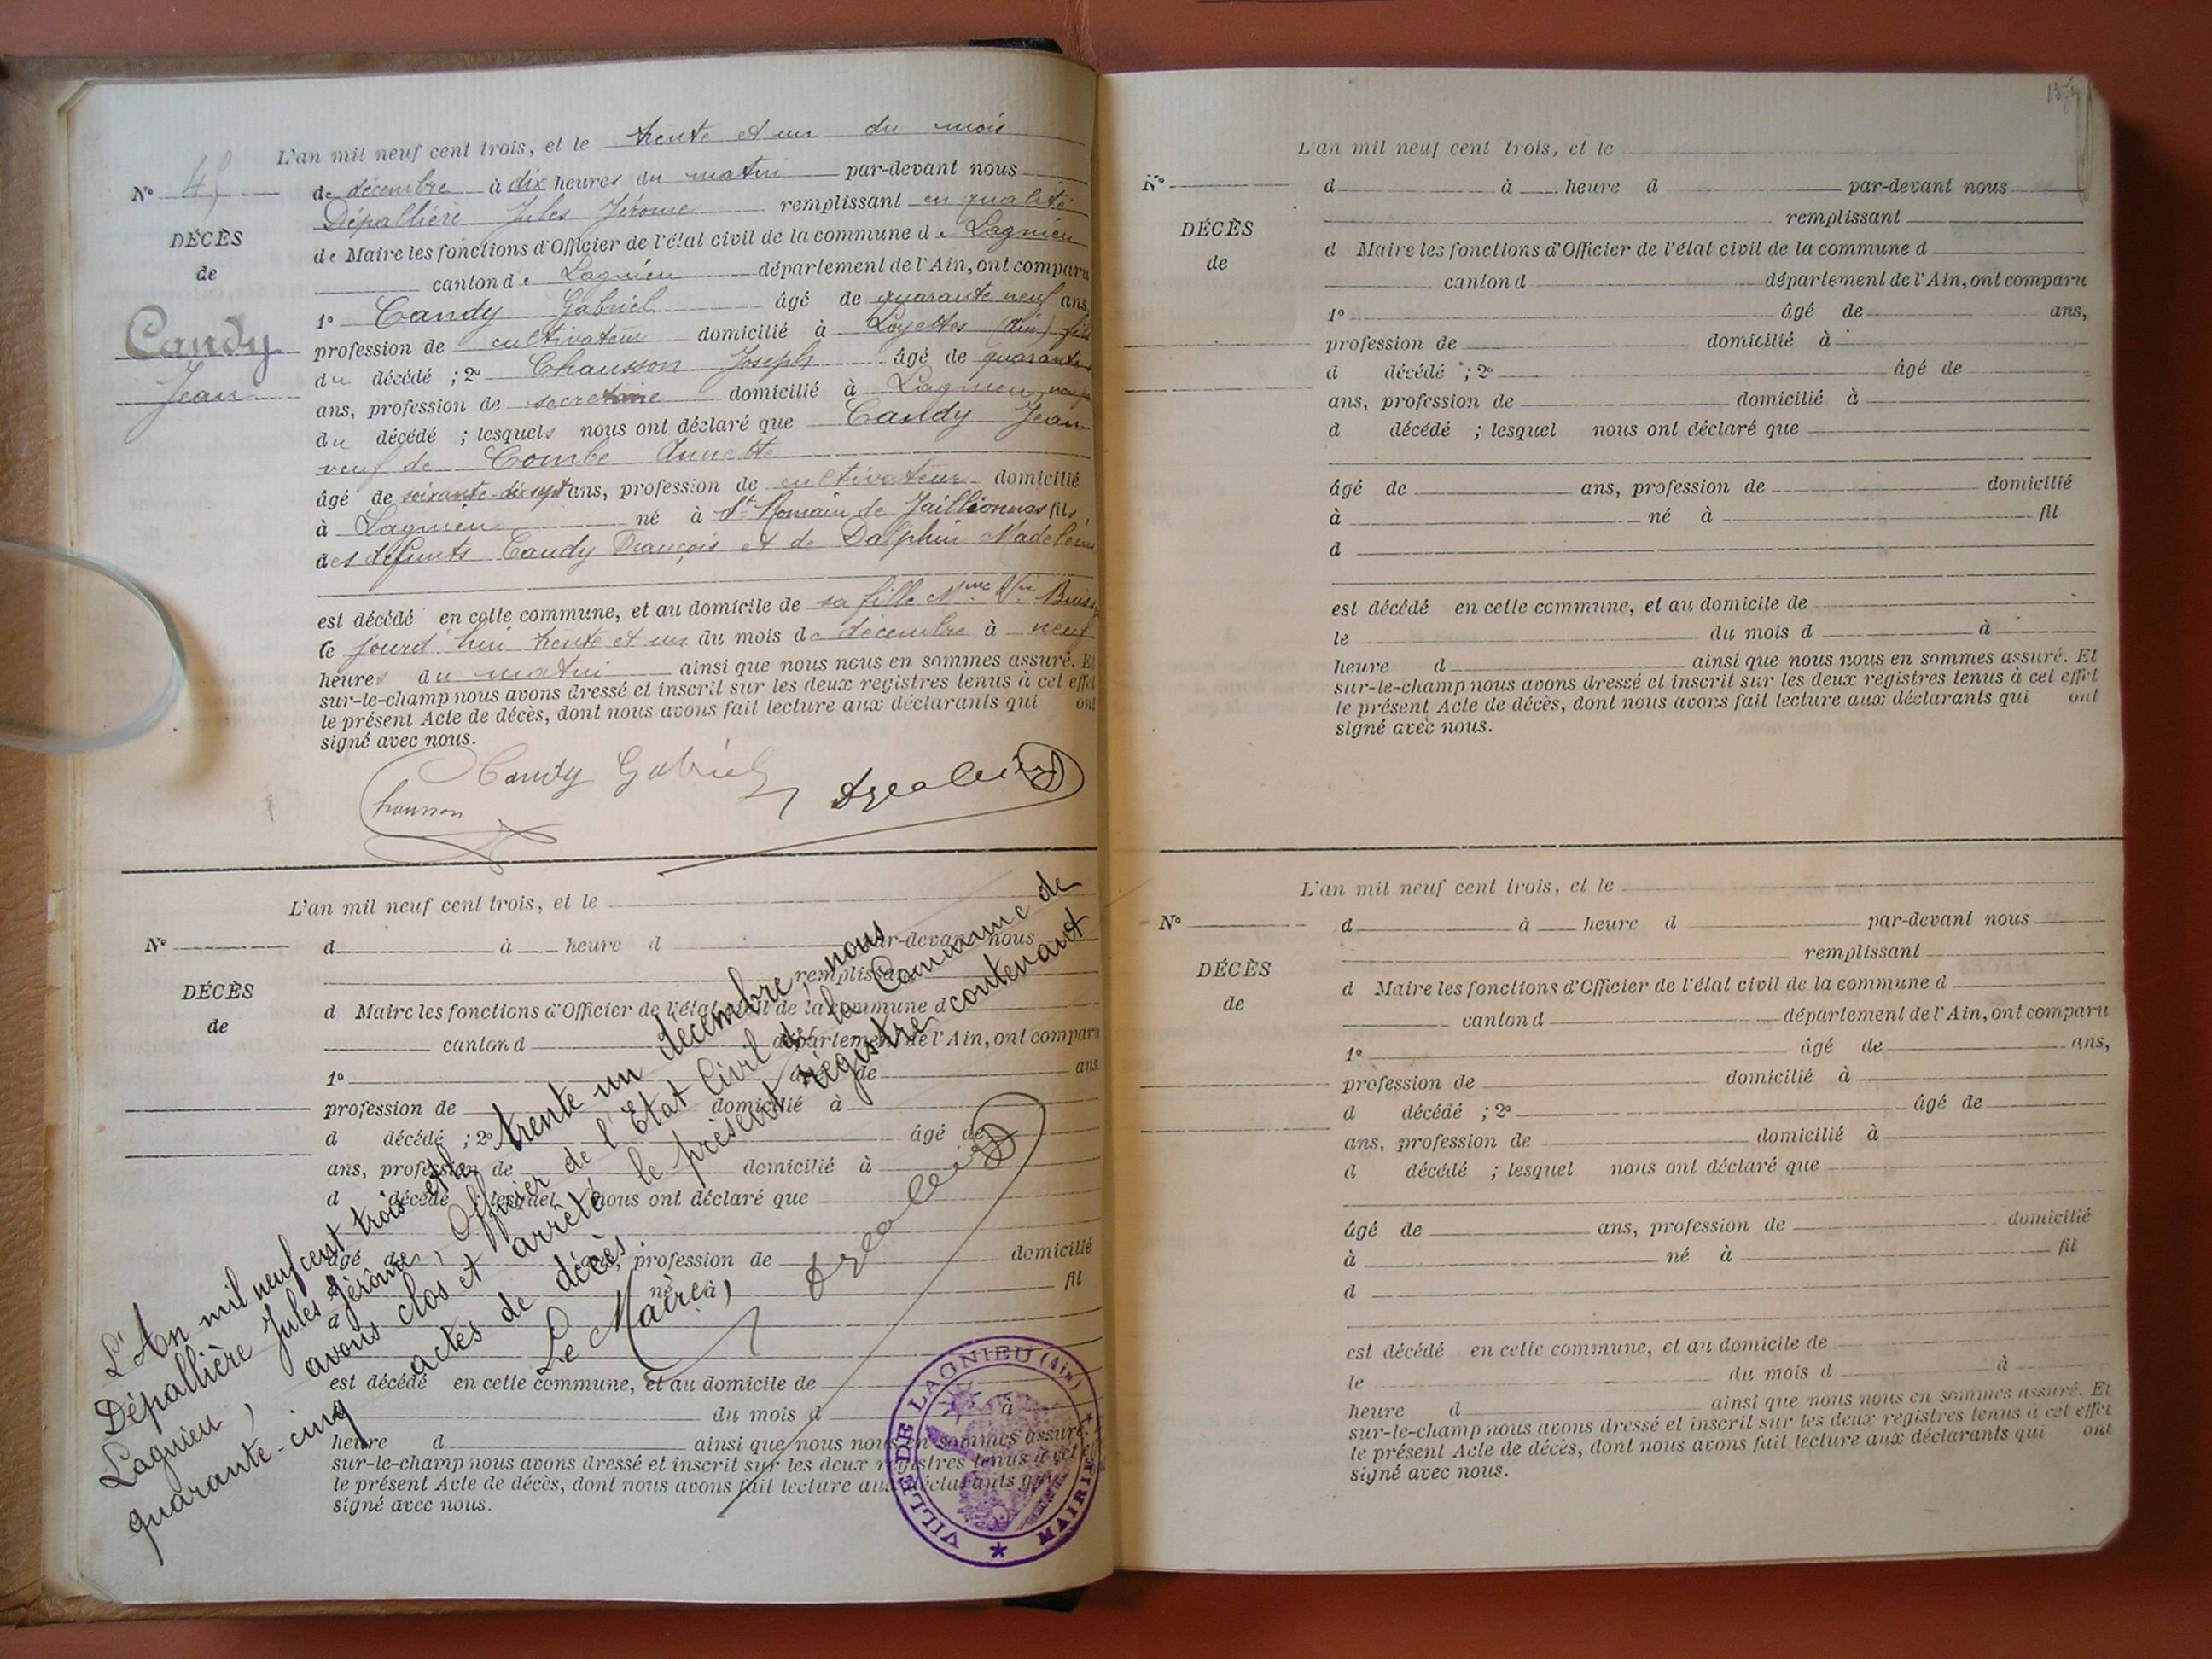 L'an mil neuf cent trois, et le trente et un du mois
N° 45
de décembre à dix heures du matin par-devant nous
Dépallière Jules Jérome remplissant en qualité
DÉCÈS
de Maire les fonctions d'Officier de l'état civil de la commune de Lagnieu
de
canton de Lagnieu département de l'Ain, ont comparu
1° Candy Gabriel âgé de quarante neuf ans,
Candy
profession de cultivateur domicilié à Loyettes (Ain) fils
du décédé ; 2° Chausson Joseph âgé de quarante
Jean
ans, profession de secretaire domicilié à Lagnieu non p
du décédé ; lesquels nous ont déclaré que Candy Jean
veuf de Combe Annette
âgé de soixante-dix sept ans, profession de cultivateur domicilié
à Lagnieu né à St Romain de Jaillionnas fils
des défunts Candy François et de Dalphin Madeleine
est décédé en cette commune, et au domicile de sa fille Mme Vve Buis
le jourd'hui trente et un du mois de décembre à neuf
heures du matin ainsi que nous nous en sommes assuré. Et
sur-le-champ nous avons dressé et inscrit sur les deux registres tenus à cet effet
le présent Acte de décès, dont nous avons fait lecture aux déclarants qui ont
signé avec nous.
Candy Gabriel
Chausson
L'an mil neuf cent trois, et le
N°
d à heure d par-devant nous
remplissant
DÉCÈS
d Maire les fonctions d'Officier de l'état civil de la commune d
de
canton d département de l'Ain, ont comparu
1° âgé de ans
profession de domicilié à
d décédé ; 2° âgé de
ans, profession de domicilié à
d décédé ; lesquel nous ont déclaré que
âgé de ans, profession de domicilié
à né à fil
d
est décédé en cette commune, et au domicile de
le du mois d à
heure d ainsi que nous nous en sommes assuré.
sur-le-champ nous avons dressé et inscrit sur les deux registres tenus à cet
le présent Acte de décès, dont nous avons fait lecture aux déclarants qui
signé avec nous.
L'An mil neuf cent trois et le trente un décembre, nous
Dépallière Jules Jérôme, Officier de l'Etat Civil de la Commune de
Lagnieu, avons clos et arrêté le présent régistre contenant
quarante-cinq actes de décès
Le Maire,
VILLE DE LAGNIEU (Ain)
* MAIRIE *
L'an mil neuf cent trois, et le
N°
d à heure d par-devant nous
remplissant
DÉCÈS
d Maire les fonctions d'Officier de l'état civil de la commune d
de
canton d département de l'Ain, ont comparu
1° âgé de ans,
profession de domicilié à
d décédé ; 2° âgé de
ans, profession de domicilié à
d décédé ; lesquel nous ont déclaré que
âgé de ans, profession de domicilié
à né à fil
d
est décédé en cette commune, et au domicile de
le du mois d à
heure d ainsi que nous nous en sommes assuré. Et
sur-le-champ nous avons dressé et inscrit sur les deux registres tenus à cet effet
le présent Acte de décès, dont nous avons fait lecture aux déclarants qui ont
signé avec nous.
L'an mil neuf cent trois, et le
N°
d à heure d par-devant nous
remplissant
DÉCÈS
d Maire les fonctions d'Officier de l'état civil de la commune d
de
canton d département de l'Ain, ont comparu
1° âgé de ans,
profession de domicilié à
d décédé ; 2° âgé de
ans, profession de domicilié à
d décédé ; lesquel nous ont déclaré que
âgé de ans, profession de domicilié
à né à fil
d
est décédé en cette commune, et au domicile de
le du mois d à
heure d ainsi que nous nous en sommes assuré. Et
sur-le-champ nous avons dressé et inscrit sur les deux registres tenus à cet effet
le présent Acte de décès, dont nous avons fait lecture aux déclarants qui ont
signé avec nous.